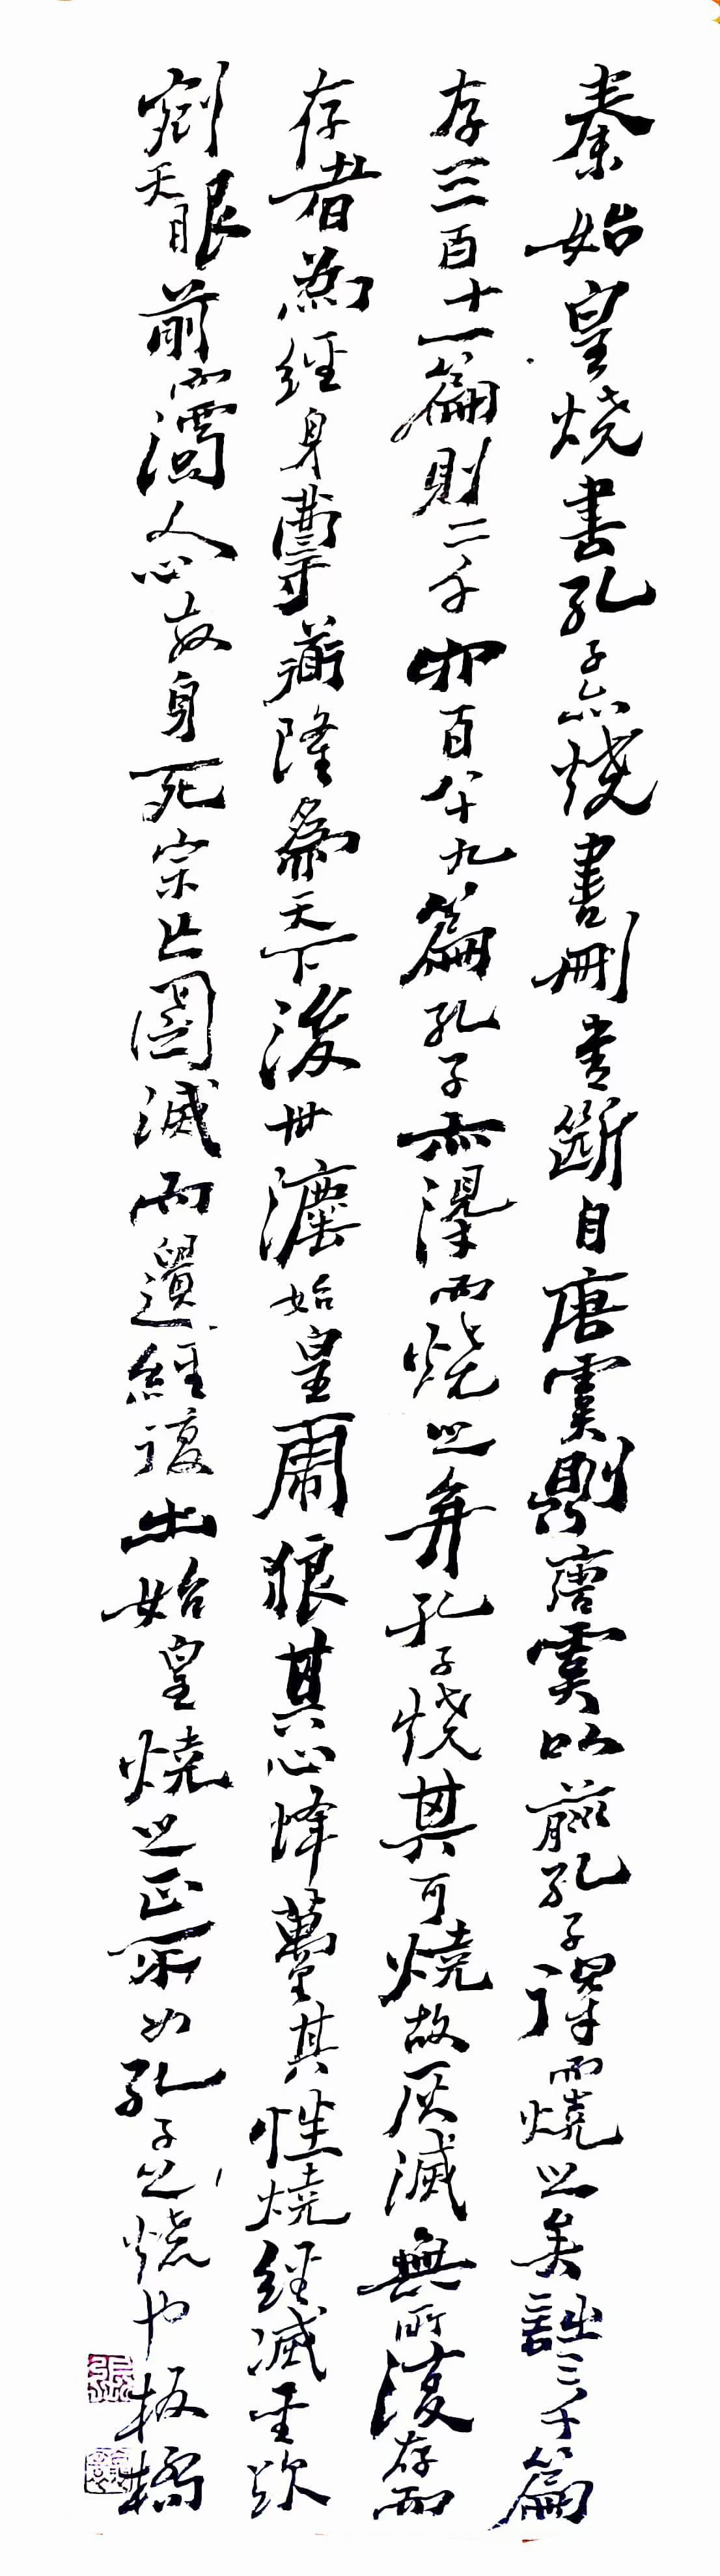 秦始皇燒書孔子亦燒書刪書斷自唐虞則唐虞以前孔子得而燒之矣詩三千篇
存三百十一篇則二千六百八十九篇孔子亦得而燒之矣孔子燒其可燒故灰滅無所復存而
存者為經身尊道隆為天下後世法始皇虎狼其心蜂蠆其性燒經滅聖欲
剜天眼前而濁人心故身死宗亡國滅而遺經復出始皇燒之正不如孔子之燒也板橋